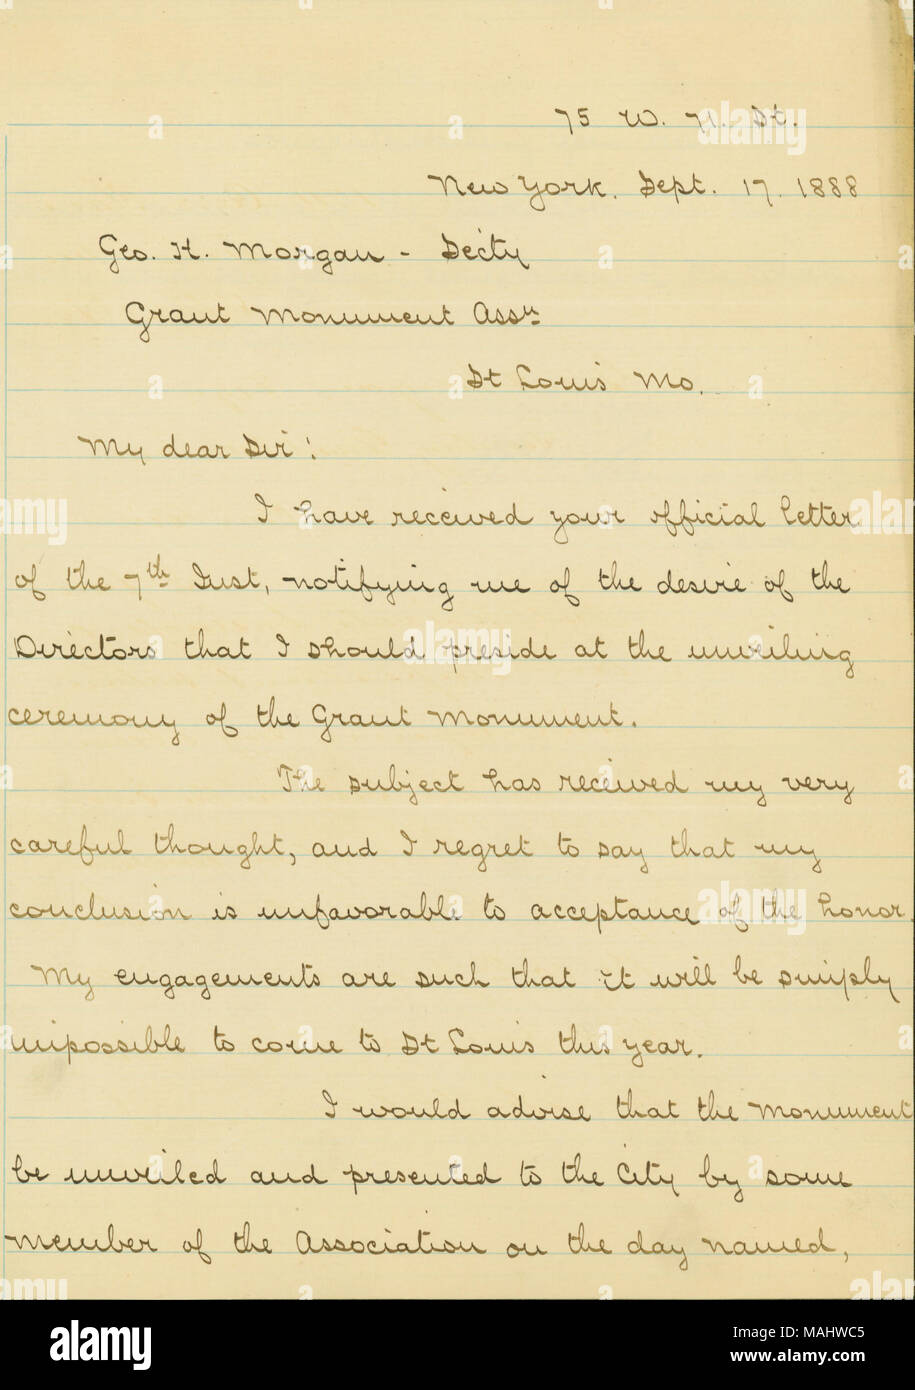 75 W. 71. St.
New York, Sept. 17. 1888
Geo. H. Morgan - Sec'ty
Grant Monument Assn
St Louis Mo.
My dear Sir:
I have received your official letter
of the 7th Inst, notifying me of the desire of the
Directors that I should preside at the unveiling
ceremony of the Grant Monument.
The subject has received my very
careful thought, and I regret to say that my
conclusion is unfavorable to acceptance of the honor.
My engagements are such that it will be simply
impossible to come to St Louis this year.
I would advise that the Monument
be unveiled and presented to the City by some
member of the Association on the day named,
alamy
Image ID: MAHWC5
www.alamy.com